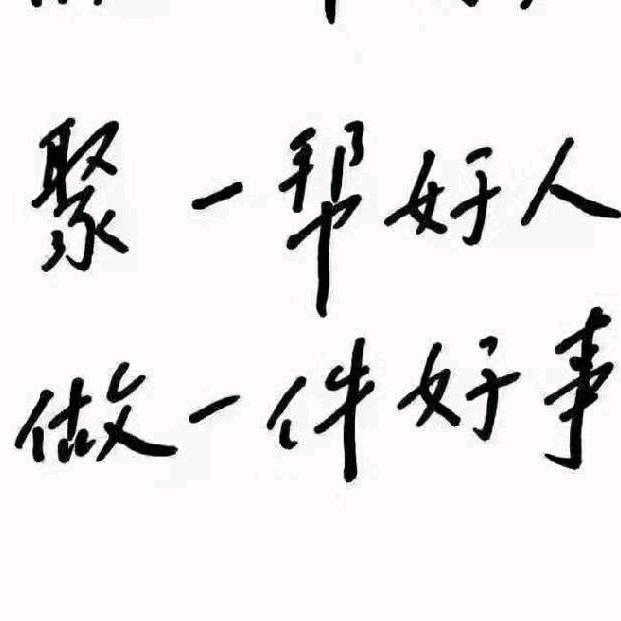 聚一帮好人
做一件好事